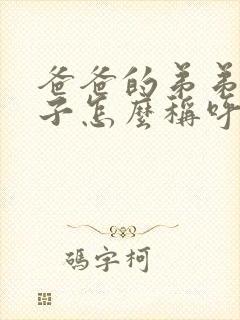 爸爸的弟弟
子怎麼稱呼
碼字柯